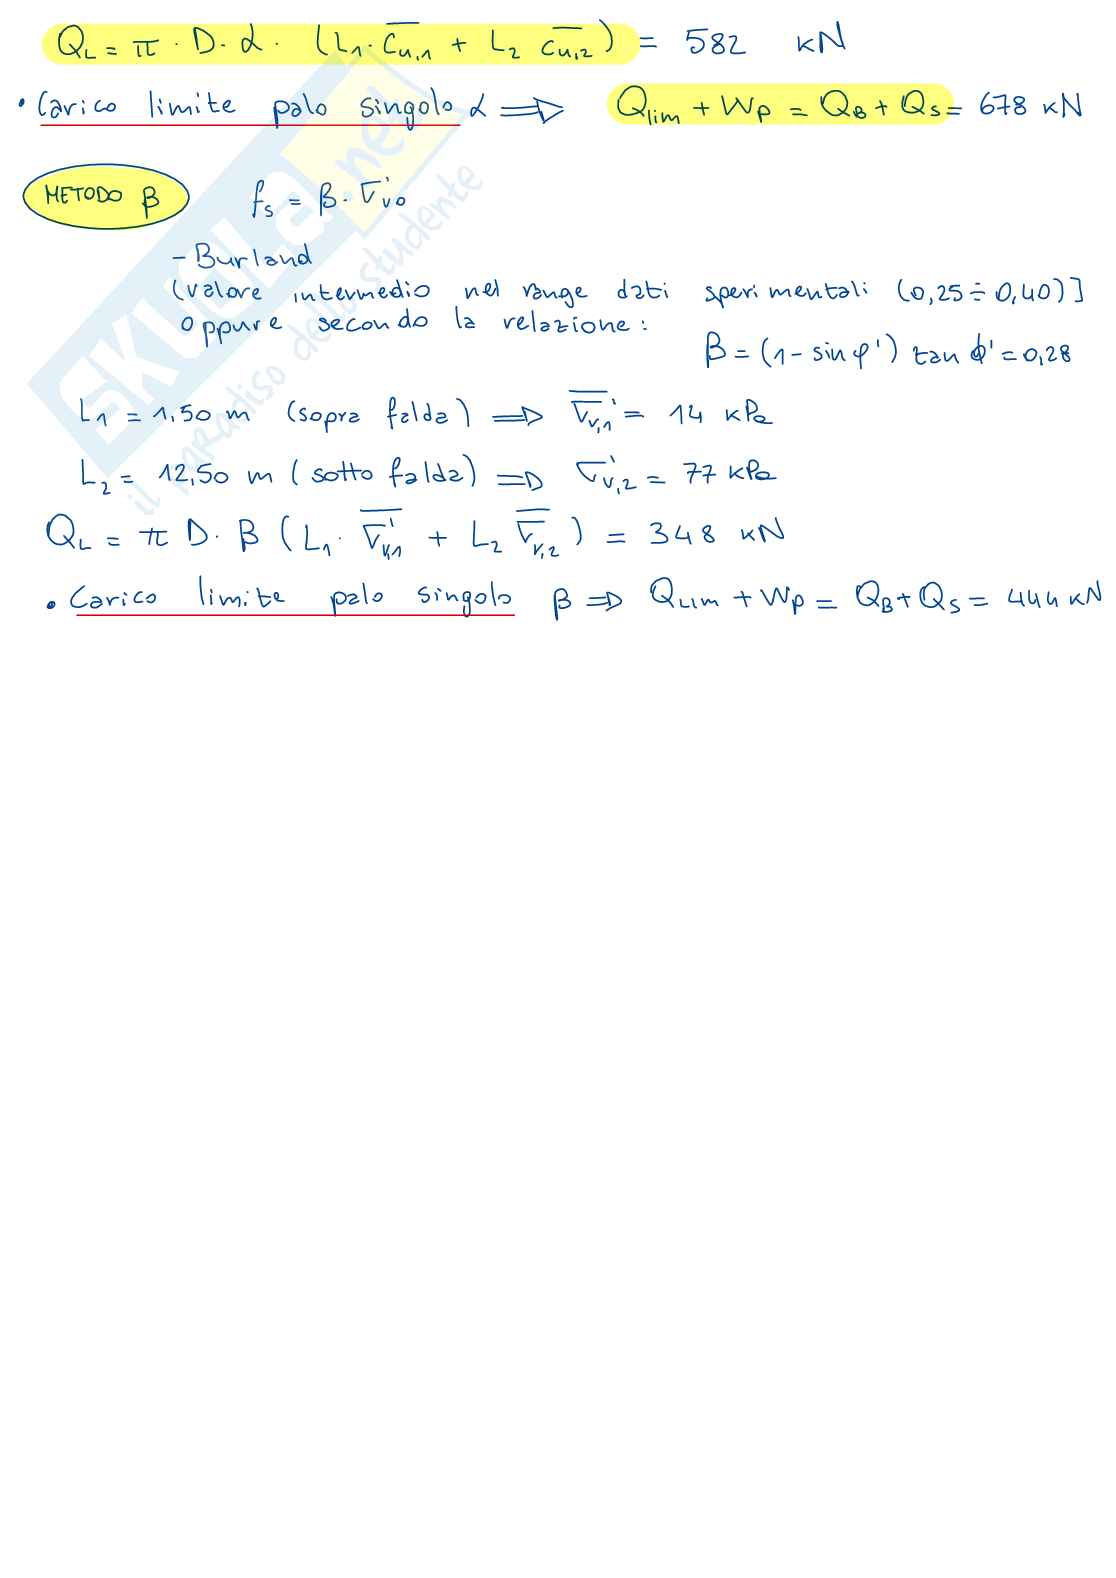 Q_L = π · D · α · (L_1 · c̅_u,1 + L_2 c̅_u,2) = 582 kN
• Carico limite palo singolo α ⟹ Q_lim + W_P = Q_B + Q_S = 678 kN
METODO β f_s = β · σ'_vo
- Burland
(valore intermedio nel range dati sperimentali (0,25 ÷ 0,40)]
oppure secondo la relazione:
β = (1 - sin φ') tan ϕ' = 0,28
L_1 = 1,50 m (sopra falda) ⟹ σ̅'_v,1 = 14 kPa
L_2 = 12,50 m (sotto falda) ⟹ σ'_v,2 = 77 kPa
Q_L = π D · β (L_1 · σ̅'_v,1 + L_2 σ̅_v,2) = 348 kN
• Carico limite palo singolo β ⟹ Q_LIM + W_P = Q_B + Q_S = 444 kN
SKUOLA.net
il paradiso dello studente